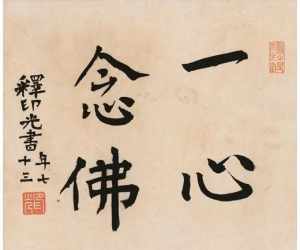 一心
念佛
釋印光書
年七十三